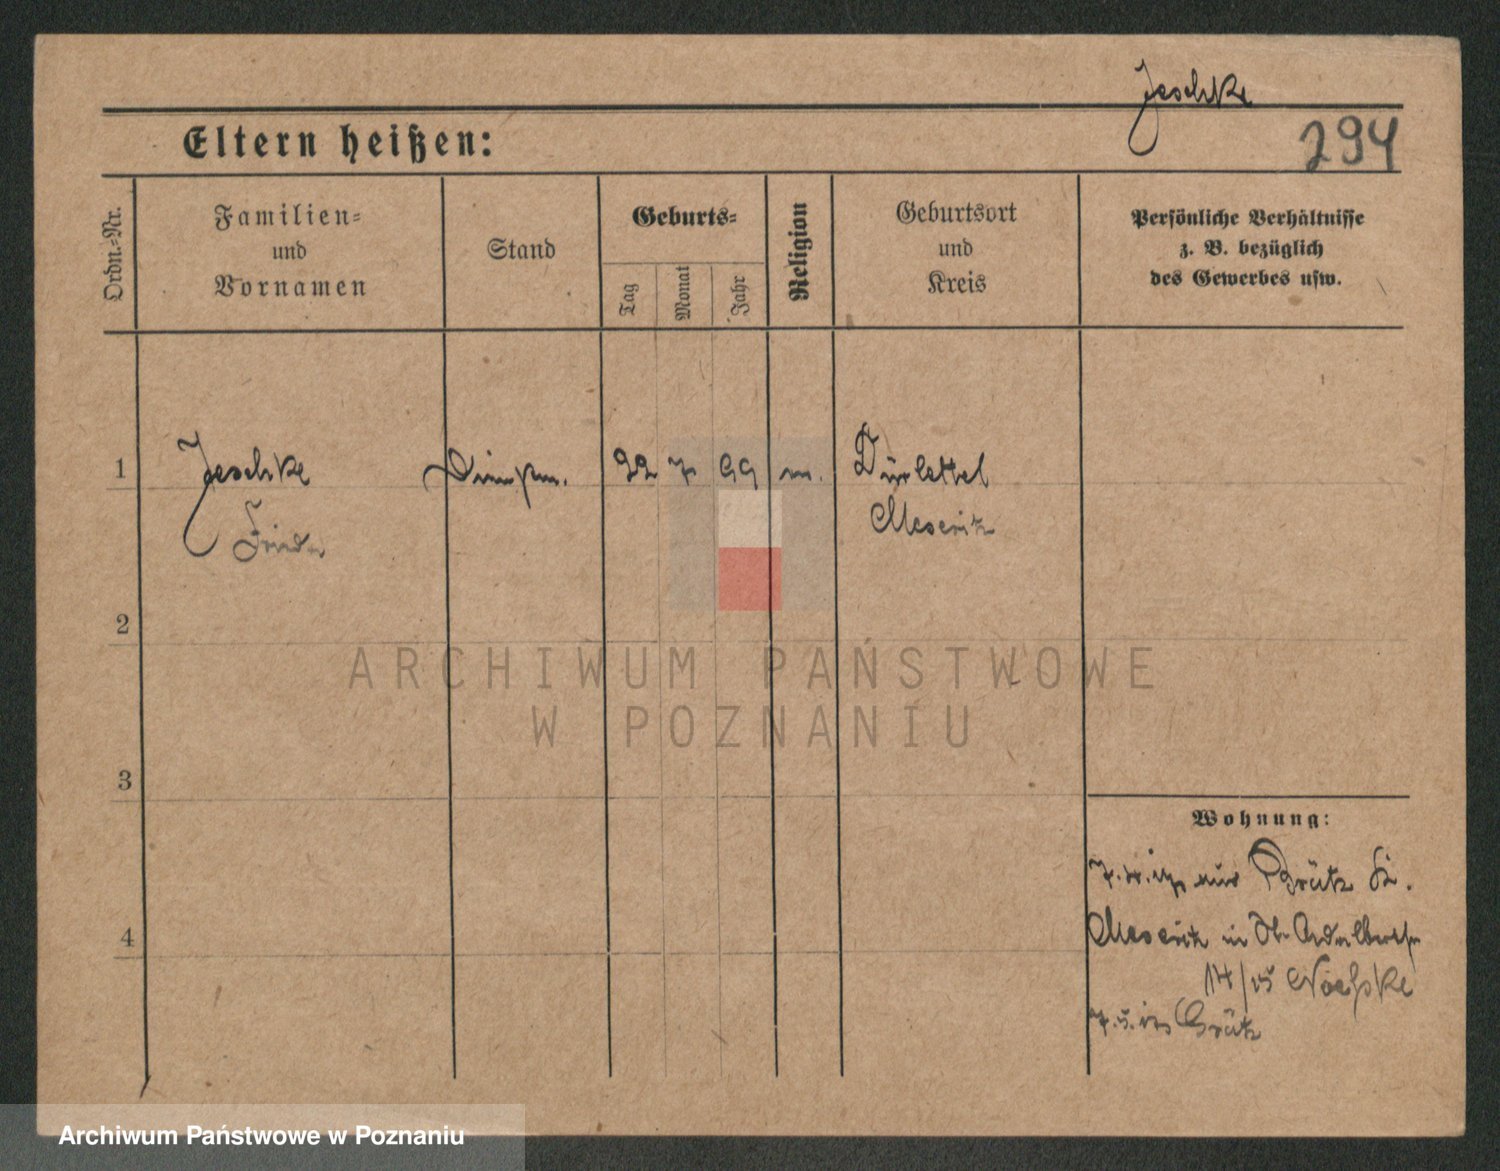 Jeschke
Eltern heißen:
294
Ordn.-Nr.
Familien-
und
Vornamen
Stand
Geburts-
Tag
Monat
Jahr
Religion
Geburtsort
und
Kreis
Persönliche Verhältnisse
z. B. bezüglich
des Gewerbes usw.
1
Jeschke
Frieda
22 7 99
Dürlettel
Meseritz
2
ARCHIWUM PAŃSTWOWE
W POZNANIU
3
Wohnung:
aus Brätz Kr.
4
Meseritz in St. Adalbertstr
14/15
Brätz
Archiwum Państwowe w Poznaniu